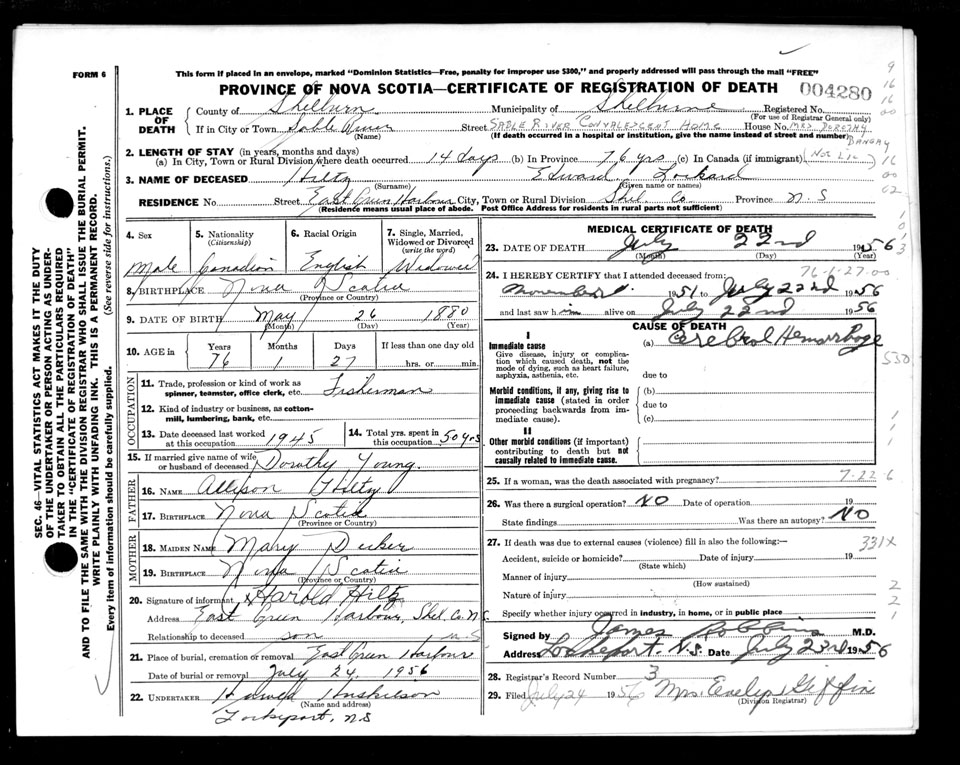 FORM 6
This form if placed in an envelope, marked "Dominion Statistics—Free, penalty for improper use $300," and properly addressed will pass through the mail "FREE"
PROVINCE OF NOVA SCOTIA—CERTIFICATE OF REGISTRATION OF DEATH 004280
1. PLACE OF DEATH
County of Shelburn Municipality of Shelburne Registered No.
(For use of Registrar General only)
If in City or Town Sable River Street SABLE RIVER CONVALESCENT HOME House No. MRS DOROTHY
(Name) (If death occurred in hospital or institution, give the name instead of street and number)
2. LENGTH OF STAY (in years, months and days)
(a) In City, Town or Rural Division where death occurred 14 days (b) In Province 76 yrs (c) In Canada (if immigrant) (Not Lic)
3. NAME OF DECEASED Hiltz Edward Lockard
(Surname) (Given name or names)
RESIDENCE No. Street East Green Harbour City, Town or Rural Division Shel. Co Province N. S
(Residence means usual place of abode. Post Office Address for residents in rural parts not sufficient)
4. Sex
Male
5. Nationality
(Citizenship)
Canadian
6. Racial Origin
English
7. Single, Married, Widowed or Divorced
(write the word)
Widower
8. BIRTHPLACE Nova Scotia
(Province or Country)
9. DATE OF BIRTH May 26 1880
(Month) (Day) (Year)
10. AGE in Years Months Days If less than one day old
76 1 27 hrs. or min.
OCCUPATION
11. Trade, profession or kind of work as spinner, teamster, office clerk, etc. Fisherman
12. Kind of industry or business, as cotton-mill, lumbering, bank, etc.
13. Date deceased last worked at this occupation 1945
14. Total yrs. spent in this occupation 50 yrs
15. If married give name of wife or husband of deceased Dorothy Young
FATHER
16. NAME Allison Hiltz
17. BIRTHPLACE Nova Scotia
(Province or Country)
MOTHER
18. MAIDEN NAME Mary Decker
19. BIRTHPLACE Nova Scotia
(Province or Country)
20. Signature of informant X Harold Hiltz
Address East Green Harbour, Shel. Co. N.S
Relationship to deceased son N.S
21. Place of burial, cremation or removal East Green Harbour
Date of burial or removal July 24, 1956
22. UNDERTAKER
(Name and address)
Lockeport, NS
MEDICAL CERTIFICATE OF DEATH
23. DATE OF DEATH July 22nd 1956
(Month) (Day) (Year)
76-1-27-00
24. I HEREBY CERTIFY that I attended deceased from:
November 1951 to July 22nd 1956
and last saw him alive on July 22nd 1956
CAUSE OF DEATH
I
Immediate cause
Give disease, injury or complication which caused death, not the mode of dying, such as heart failure, asphyxia, asthenia, etc.
(a) Cerebral Hemorrhage
due to
Morbid conditions, if any, giving rise to immediate cause (stated in order proceeding backwards from immediate cause).
(b)
due to
(c)
II
Other morbid conditions (if important) contributing to death but not causally related to immediate cause.
25. If a woman, was the death associated with pregnancy? 7-22-6
26. Was there a surgical operation? NO Date of operation 19
State findings Was there an autopsy? NO
27. If death was due to external causes (violence) fill in also the following:— 331X
Accident, suicide or homicide? Date of injury 19
(State which)
Manner of injury
(How sustained)
Nature of injury
Specify whether injury occurred in industry, in home, or in public place
Signed by James Robbins M.D.
Address Lockeport. N.S. Date July 23rd 1956
28. Registrar's Record Number 3
29. Filed July 24 1956 Mrs. Evelyn Giffin
(Division Registrar)
SEC. 46—VITAL STATISTICS ACT MAKES IT THE DUTY
OF THE UNDERTAKER OR PERSON ACTING AS UNDER-
TAKER TO OBTAIN ALL THE PARTICULARS REQUIRED
IN THE "CERTIFICATE OF REGISTRATION OF DEATH"
AND TO FILE THE SAME WITH THE DIVISION REGISTRAR WHO SHALL ISSUE THE BURIAL PERMIT.
WRITE PLAINLY WITH UNFADING INK. THIS IS A PERMANENT RECORD.
Every item of information should be carefully supplied. (See reverse side for instructions.)